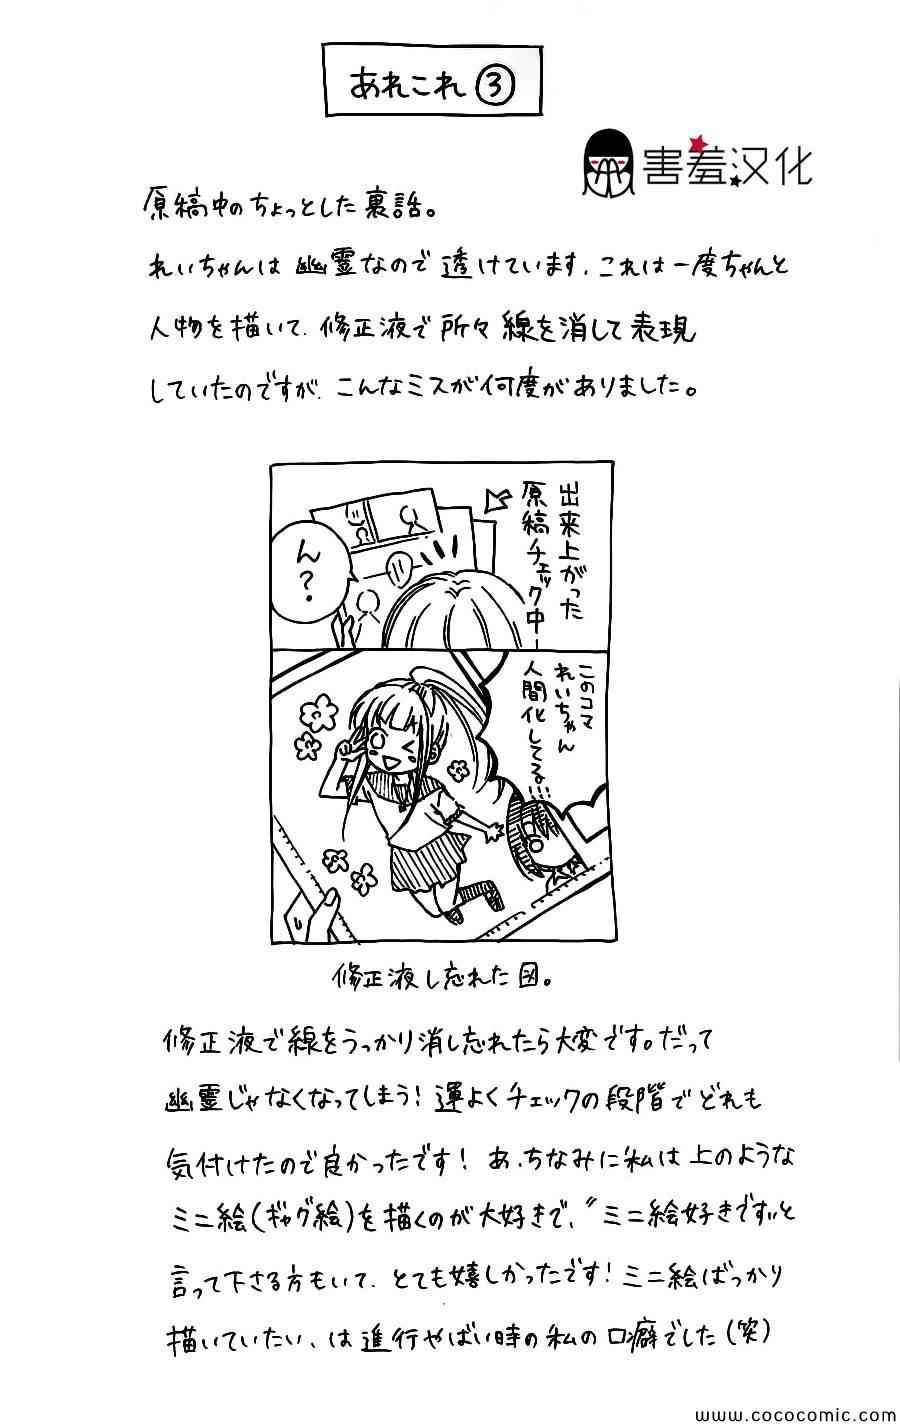 あれこれ③
害羞汉化
原稿中のちょっとした裏話。
れいちゃんは幽霊なので透けています。これは一度ちゃんと
人物を描いて、修正液で所々線を消して表現
していたのですが、こんなミスが何度がありました。
出来上がった
原稿チェック中→
ん?
このコマ
れいちゃん
人間化してる…!!
修正液し忘れた図。
修正液で線をうっかり消し忘れたら大変です。だって
幽霊じゃなくなってしまう!運よくチェックの段階でどれも
気付けたので良かったです!あ、ちなみに私は上のような
ミニ絵(ギャグ絵)を描くのが大好きで、〝ミニ絵好きです〟と
言って下さる方もいて、とても嬉しかったです!ミニ絵ばっかり
描いていたい、は進行やばい時の私の口癖でした(笑)
www.cococomic.com